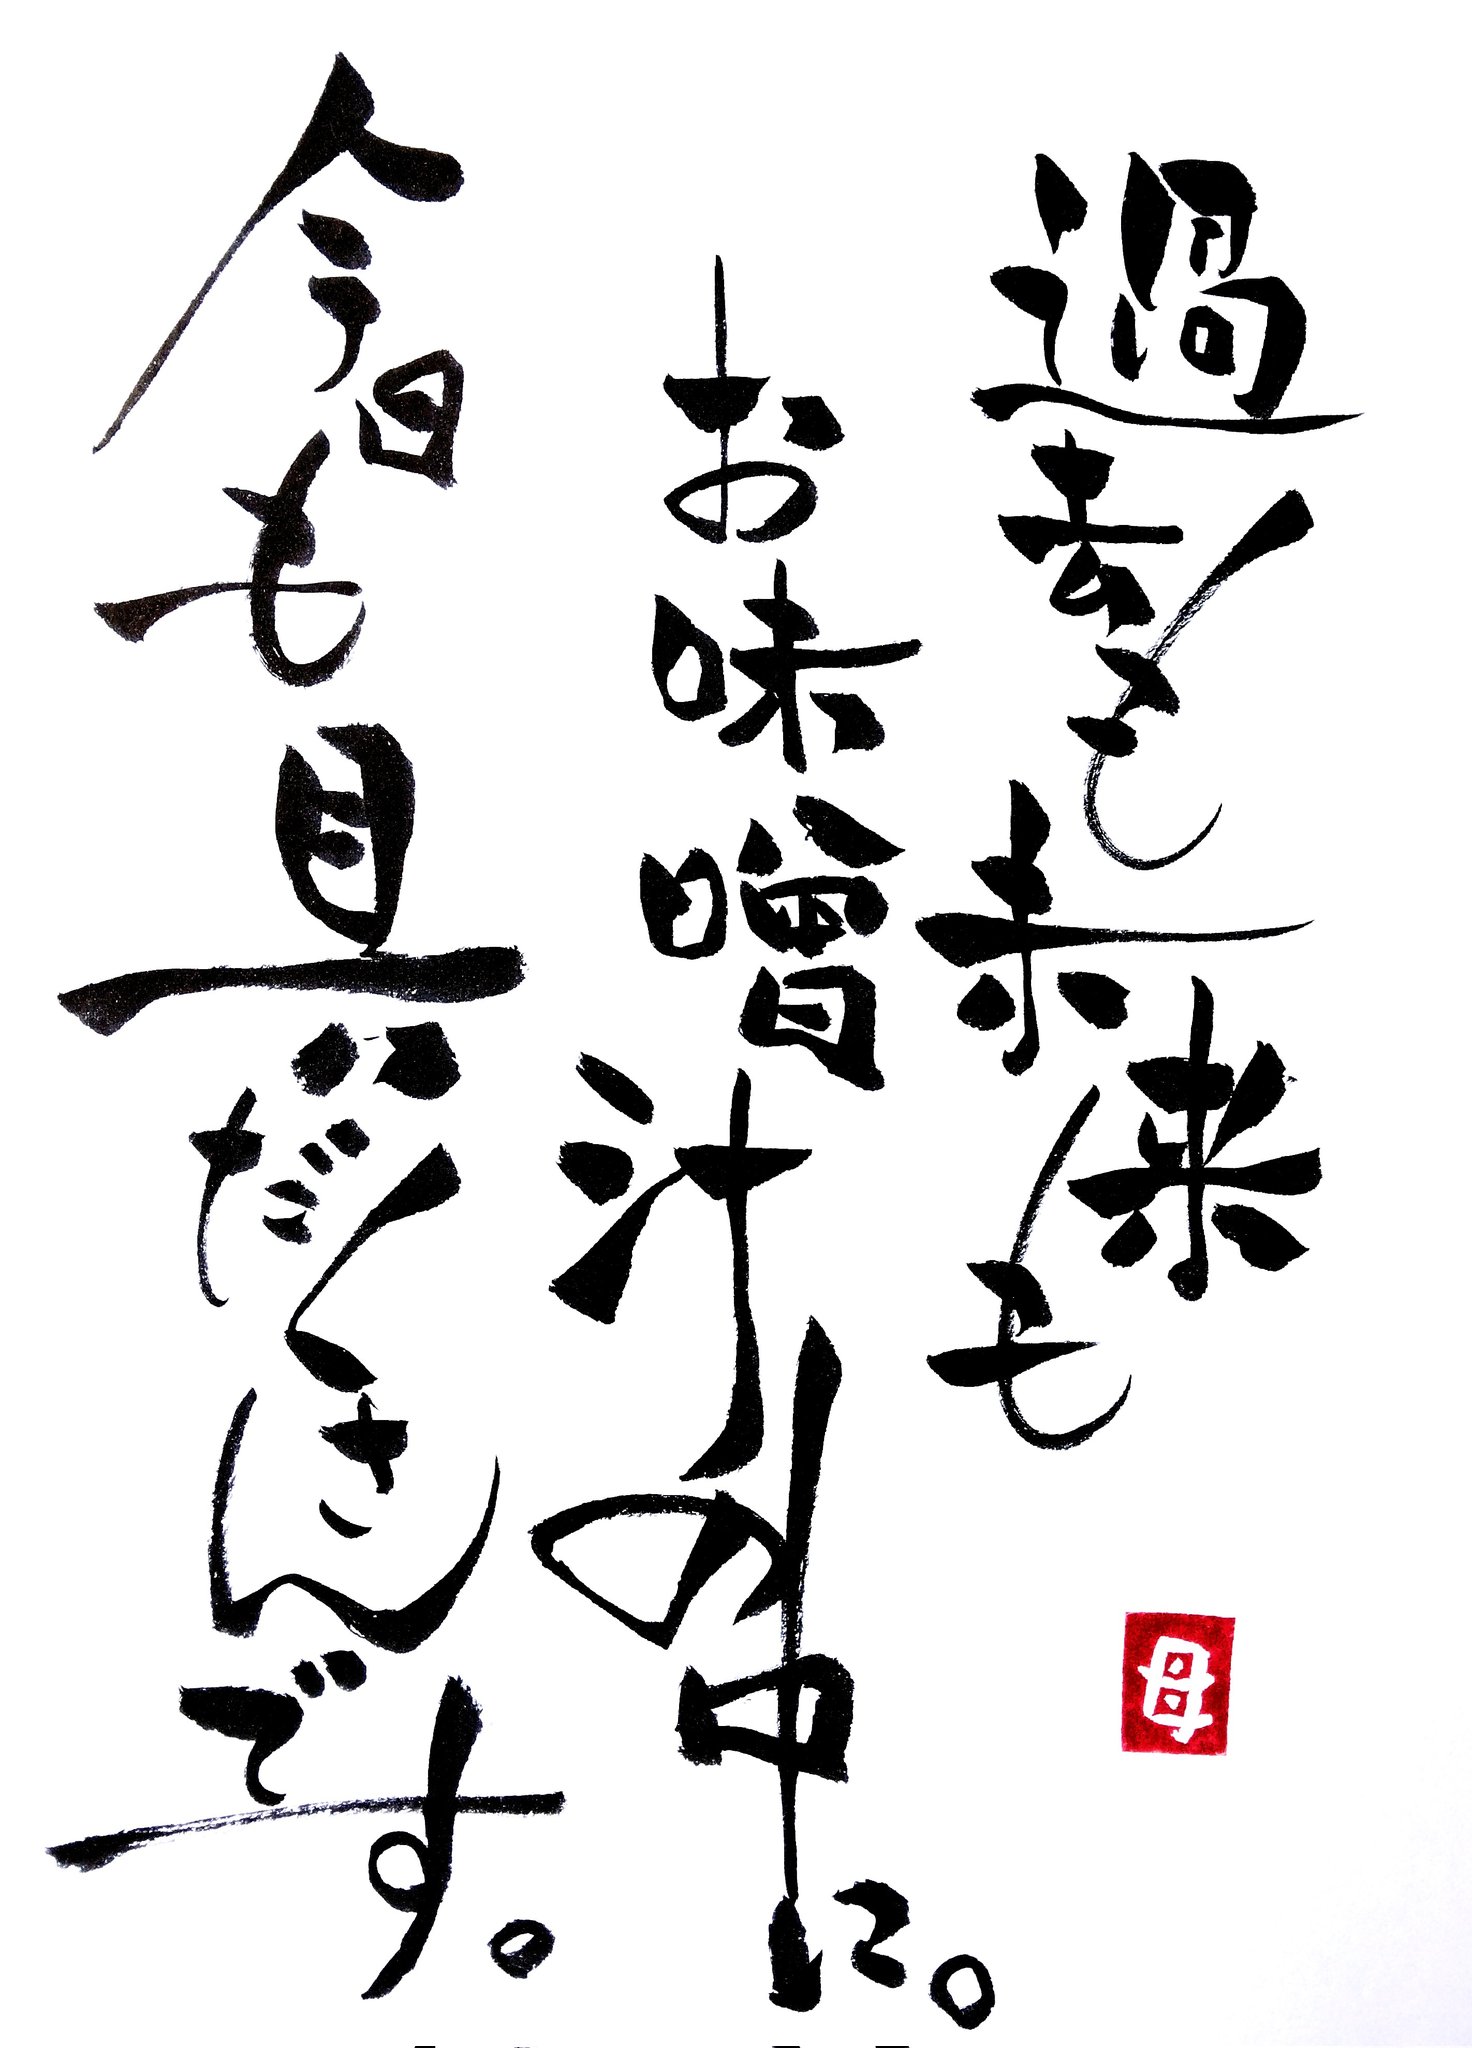 過去も未来も
お味噌汁の中に。
今日も具だくさんです。
母